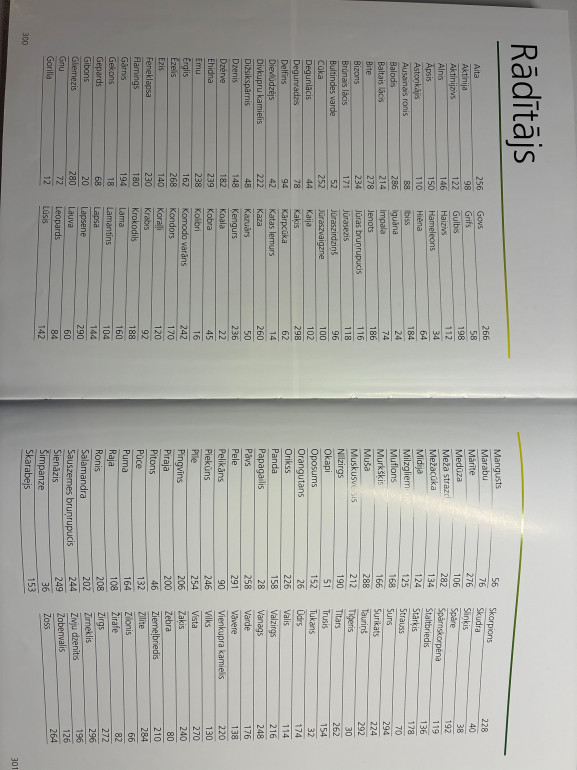 Rādītājs
Aita 256
Aktīnija 98
Aktīnijzivs 122
Alnis 146
Āpsis 150
Astoņkājis 110
Ausainais ronis 88
Balodis 286
Baltais lācis 214
Bite 278
Bizons 234
Brūnais lācis 171
Bultindes varde 52
Cūka 252
Degunlācis 44
Degunradzis 78
Delfīns 94
Dievlūdzējs 42
Divkupru kamielis 222
48
Dzenis 148
Dzērve 182
Ehidna 239
Emu 238
Ērglis 162
Ēzelis 268
Ezis 140
Feneklapsa 230
Flamings 180
Gārnis 194
Gekons 18
Gepards 68
Gibons 20
Gliemezis 280
Gnu 72
Gorilla 12
Govs 266
Grifs 58
Gulbis 198
Haizivs 112
Hameleons 34
Hiēna 64
Ibiss 184
Iguāna 24
Impala 74
Jenots 186
Jūras bruņrupucis 116
Jūrasezis 118
Jūraszirdziņš 96
Jūraszvaigzne 100
Kaija 102
Kaķis 298
Kārpcūka 62
Katas lemurs 14
Kaza 260
Kazuārs 50
Ķengurs 236
Koala 22
Kobra 45
Kolibri 16
Komodo varāns 242
Kondors 170
Koraļļi 120
Krabis 92
Krokodils 188
Lama 160
Lamantīns 104
Lapsa 144
Lapsene 290
Lauva 60
Leopards 84
Lūsis 142
300
Mangusts 56
Marabu 76
Mārīte 276
Medūza 106
Meža strazds 282
Mežacūka 134
Mīdija 124
Milzgliemene 125
Muflons 168
Murkšķis 166
Muša 288
Muskusvērsis 212
Nīlzirgs 190
Okapi 51
Oposums 152
Orangutans 26
Orikss 226
Panda 158
Papagailis 28
Pāvs 258
Pele 291
Pelikāns 90
Piekūns 246
Pīle 254
Pingvīns 206
Piraja 200
Pitons 46
Pūce 132
Puma 164
Raja 108
Ronis 208
Salamandra 202
Sauszemes bruņrupucis 244
Sienāzis 249
Šimpanze 36
Skarabejs 153
Skorpions 228
Skudra 40
Sliņķis 38
Spāre 192
Spārnskorpēna 119
Staltbriedis 136
Stārķis 178
Strauss 70
Suns 294
Surikats 224
Tauriņš 292
Tīģeris 30
Tītars 262
Trusis 154
Tukāns 32
Ūdrs 174
Valis 114
Valzirgs 216
Vanags 248
Varde 176
Vāvere 138
Vienkupra kamielis 220
Vilks 130
Vista 270
Zaķis 240
Zebra 80
Ziemeļbriedis 210
Zīlīte 284
Zilonis 66
Žirafe 82
Zirgs 272
Zirneklis 296
Zivju dzenītis 196
Zobenvalis 126
Zoss 264
301